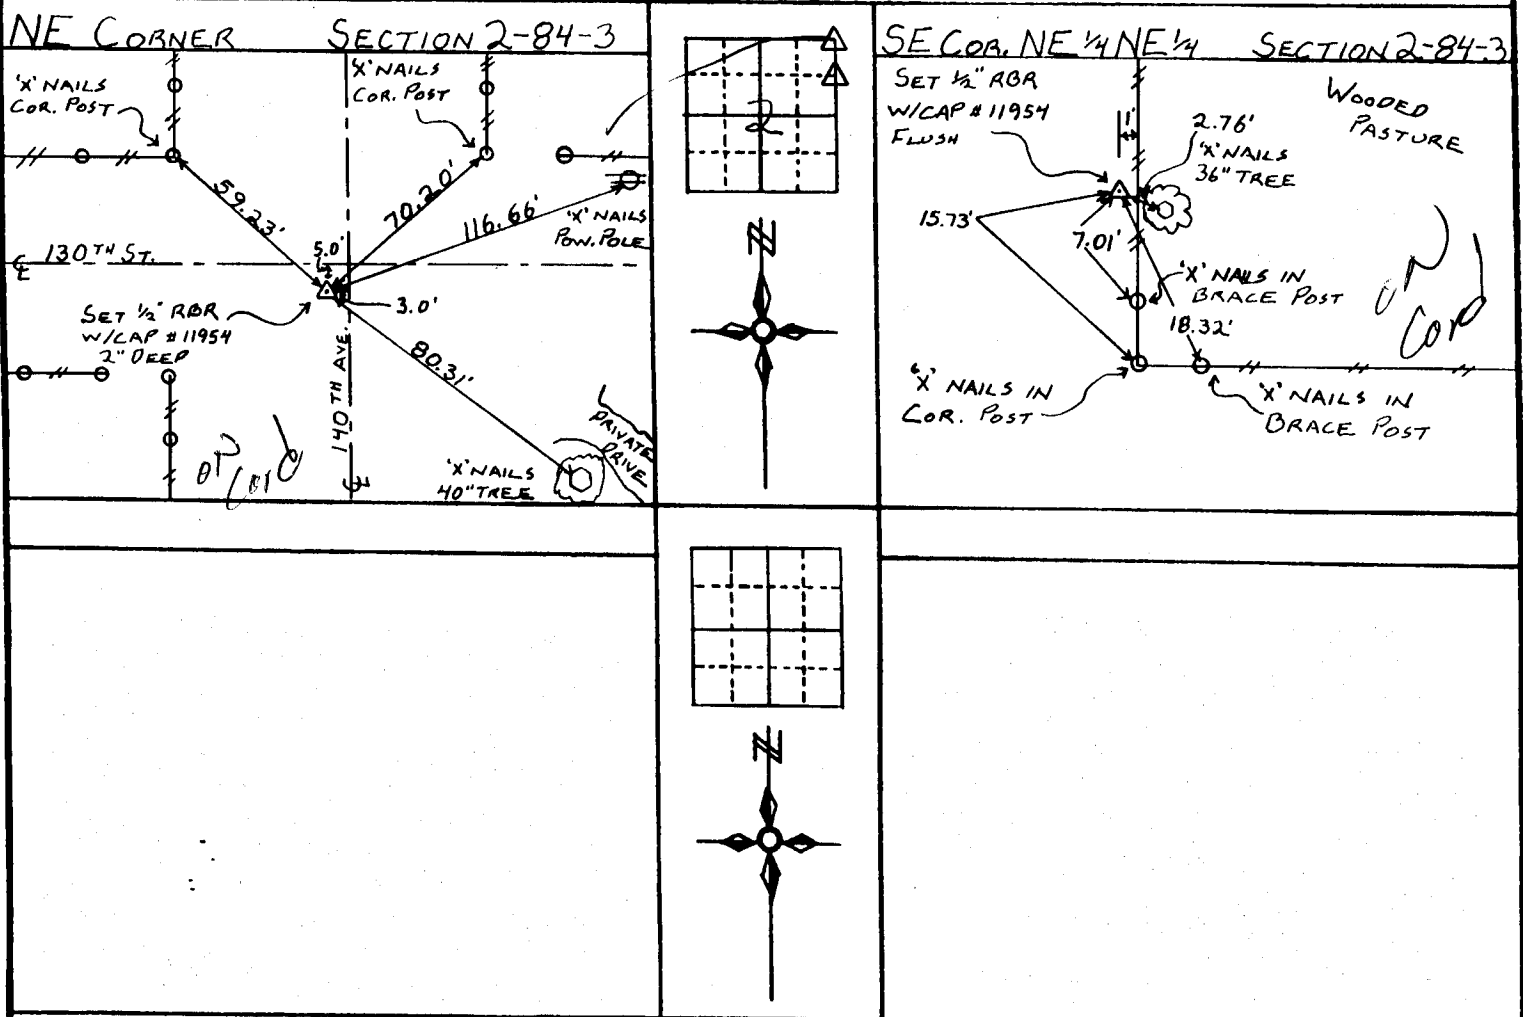 NE CORNER SECTION 2-84-3
'X' NAILS
COR. POST
'X' NAILS
COR. POST
59.23'
70.20'
116.66'
'X' NAILS
POW. POLE
℄ 130TH ST.
5.0'
3.0'
SET 1/2" RBR
W/CAP #11954
2" DEEP
140TH AVE.
℄
80.31'
PRIVATE
DRIVE
'X' NAILS
40" TREE
ON
Cord
2
N
SE COR. NE 1/4 NE 1/4 SECTION 2-84-3
SET 1/2" RBR
W/CAP #11954
FLUSH
1'
2.76'
'X' NAILS
36" TREE
WOODED
PASTURE
15.73'
7.01'
'X' NAILS IN
BRACE POST
18.32'
'X' NAILS IN
COR. POST
'X' NAILS IN
BRACE POST
ON
Cord
N